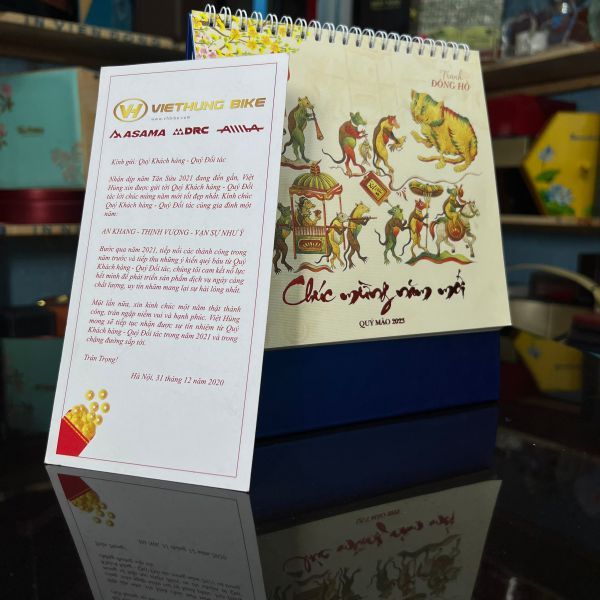 IN VIỄN ĐÔNG
VIETHUNG BIKE
www.vhbike.com
ASAMA DRC AMA
Kính gửi: Quý Khách hàng - Quý Đối tác
Nhân dịp năm Tân Sửu 2021 đang đến gần, Việt
Hùng xin được gửi tới Quý Khách hàng - Quý Đối
tác lời chúc mừng năm mới tốt đẹp nhất. Kính chúc
Quý Khách hàng - Quý Đối tác cùng gia đình một
năm:
AN KHANG - THỊNH VƯỢNG - VẠN SỰ NHƯ Ý
Bước qua năm 2021, tiếp nối các thành công trong
năm trước và tiếp thu những ý kiến quý báu từ Quý
Khách hàng - Quý Đối tác, chúng tôi cam kết nỗ lực
hết mình để phát triển sản phẩm dịch vụ ngày càng
chất lượng, uy tín nhằm mang lại sự hài lòng nhất.
Một lần nữa, xin kính chúc một năm thật thành
công, tràn ngập niềm vui và hạnh phúc. Việt Hùng
mong sẽ tiếp tục nhận được sự tín nhiệm từ Quý
Khách hàng - Quý Đối tác trong năm 2021 và trong
chặng đường sắp tới.
Trân Trọng!
Hà Nội, 31 tháng 12 năm 2020
Tranh
ĐÔNG HỒ
Chúc mừng năm mới
QUÝ MÃO 2023